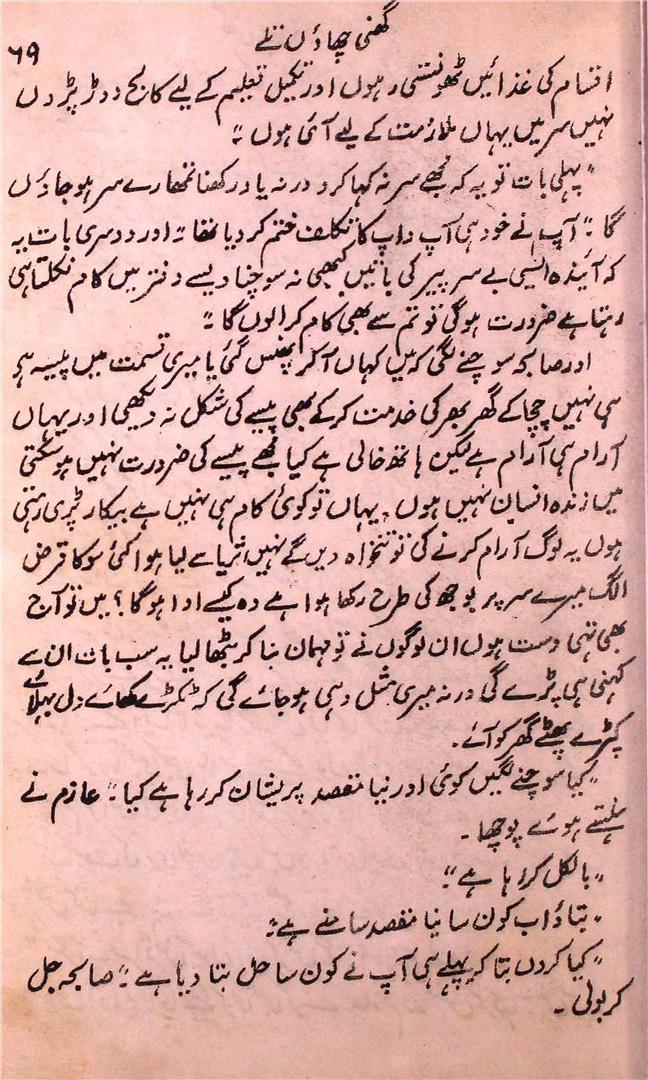 گھنی چھاؤں تلے
۶۹
اقسام کی غذائیں ٹھونستی رہوں اور تکمیل تعلیم کے لیے کالج دوڑ پڑوں
نہیں سر میں یہاں ملازمت کے لیے آئی ہوں ؛"
"پہلی بات تو یہ کہ مجھے سر نہ کہا کرو ورنہ یاد رکھنا تمھارے سر ہو جاؤں
گا ؛" آپ نے خود ہی آپ واپ کا تکلف ختم کر دیا تھا ؛" اور دوسری بات یہ
کہ آیندہ ایسی بے سر پیر کی باتیں کبھی نہ سوچنا ویسے دفتر میں کام نکلتا ہی
رہتا ہے ضرورت ہوگی تو تم سے بھی کام کرا لوں گا ؛"
اور صابحہ سوچنے لگی کہ میں کہاں آ کر پھنس گئی یا میری قسمت میں پیسہ ہی
ہی نہیں چچا کے گھر بھر کی خدمت کر کے بھی پیسے کی شکل نہ دیکھی اور یہاں
آرام ہی آرام ہے لیکن ہاتھ خالی ہے کیا مجھے پیسے کی ضرورت نہیں ہو سکتی
میں زندہ انسان نہیں ہوں ۔ یہاں تو کوئی کام ہی نہیں ہے بیکار پڑی رہتی
ہوں یہ لوگ آرام کرنے کی تو تنخواہ دیں گے نہیں ثریا سے لیا ہوا کئی سو کا قرض
الگ میرے سر پر بوجھ کی طرح رکھا ہوا ہے وہ کیسے ادا ہو گا ؟ میں تو آج
بھی تہی دست ہوں ان لوگوں نے تو مہمان بنا کر بٹھا لیا یہ سب بات ان سے
کہنی ہی پڑے گی ورنہ میری مثل وہی ہو جائے گی کہ ٹکڑے کھائے دل بہلائے
کپڑے پھٹے گھر کو آئے ۔
"کیا سوچنے لگیں کوئی اور نیا مقصد پریشان کر رہا ہے کیا ؛" عازم نے
ہنستے ہوئے پوچھا ۔
"بالکل کر رہا ہے" ؛
"بتاؤ اب کون سا نیا مقصد سامنے ہے ؛"
"کیا کروں بتا کر پہلے ہی آپ نے کون سا حل بتا دیا ہے ؛" صابحہ جل
کر بولی ۔